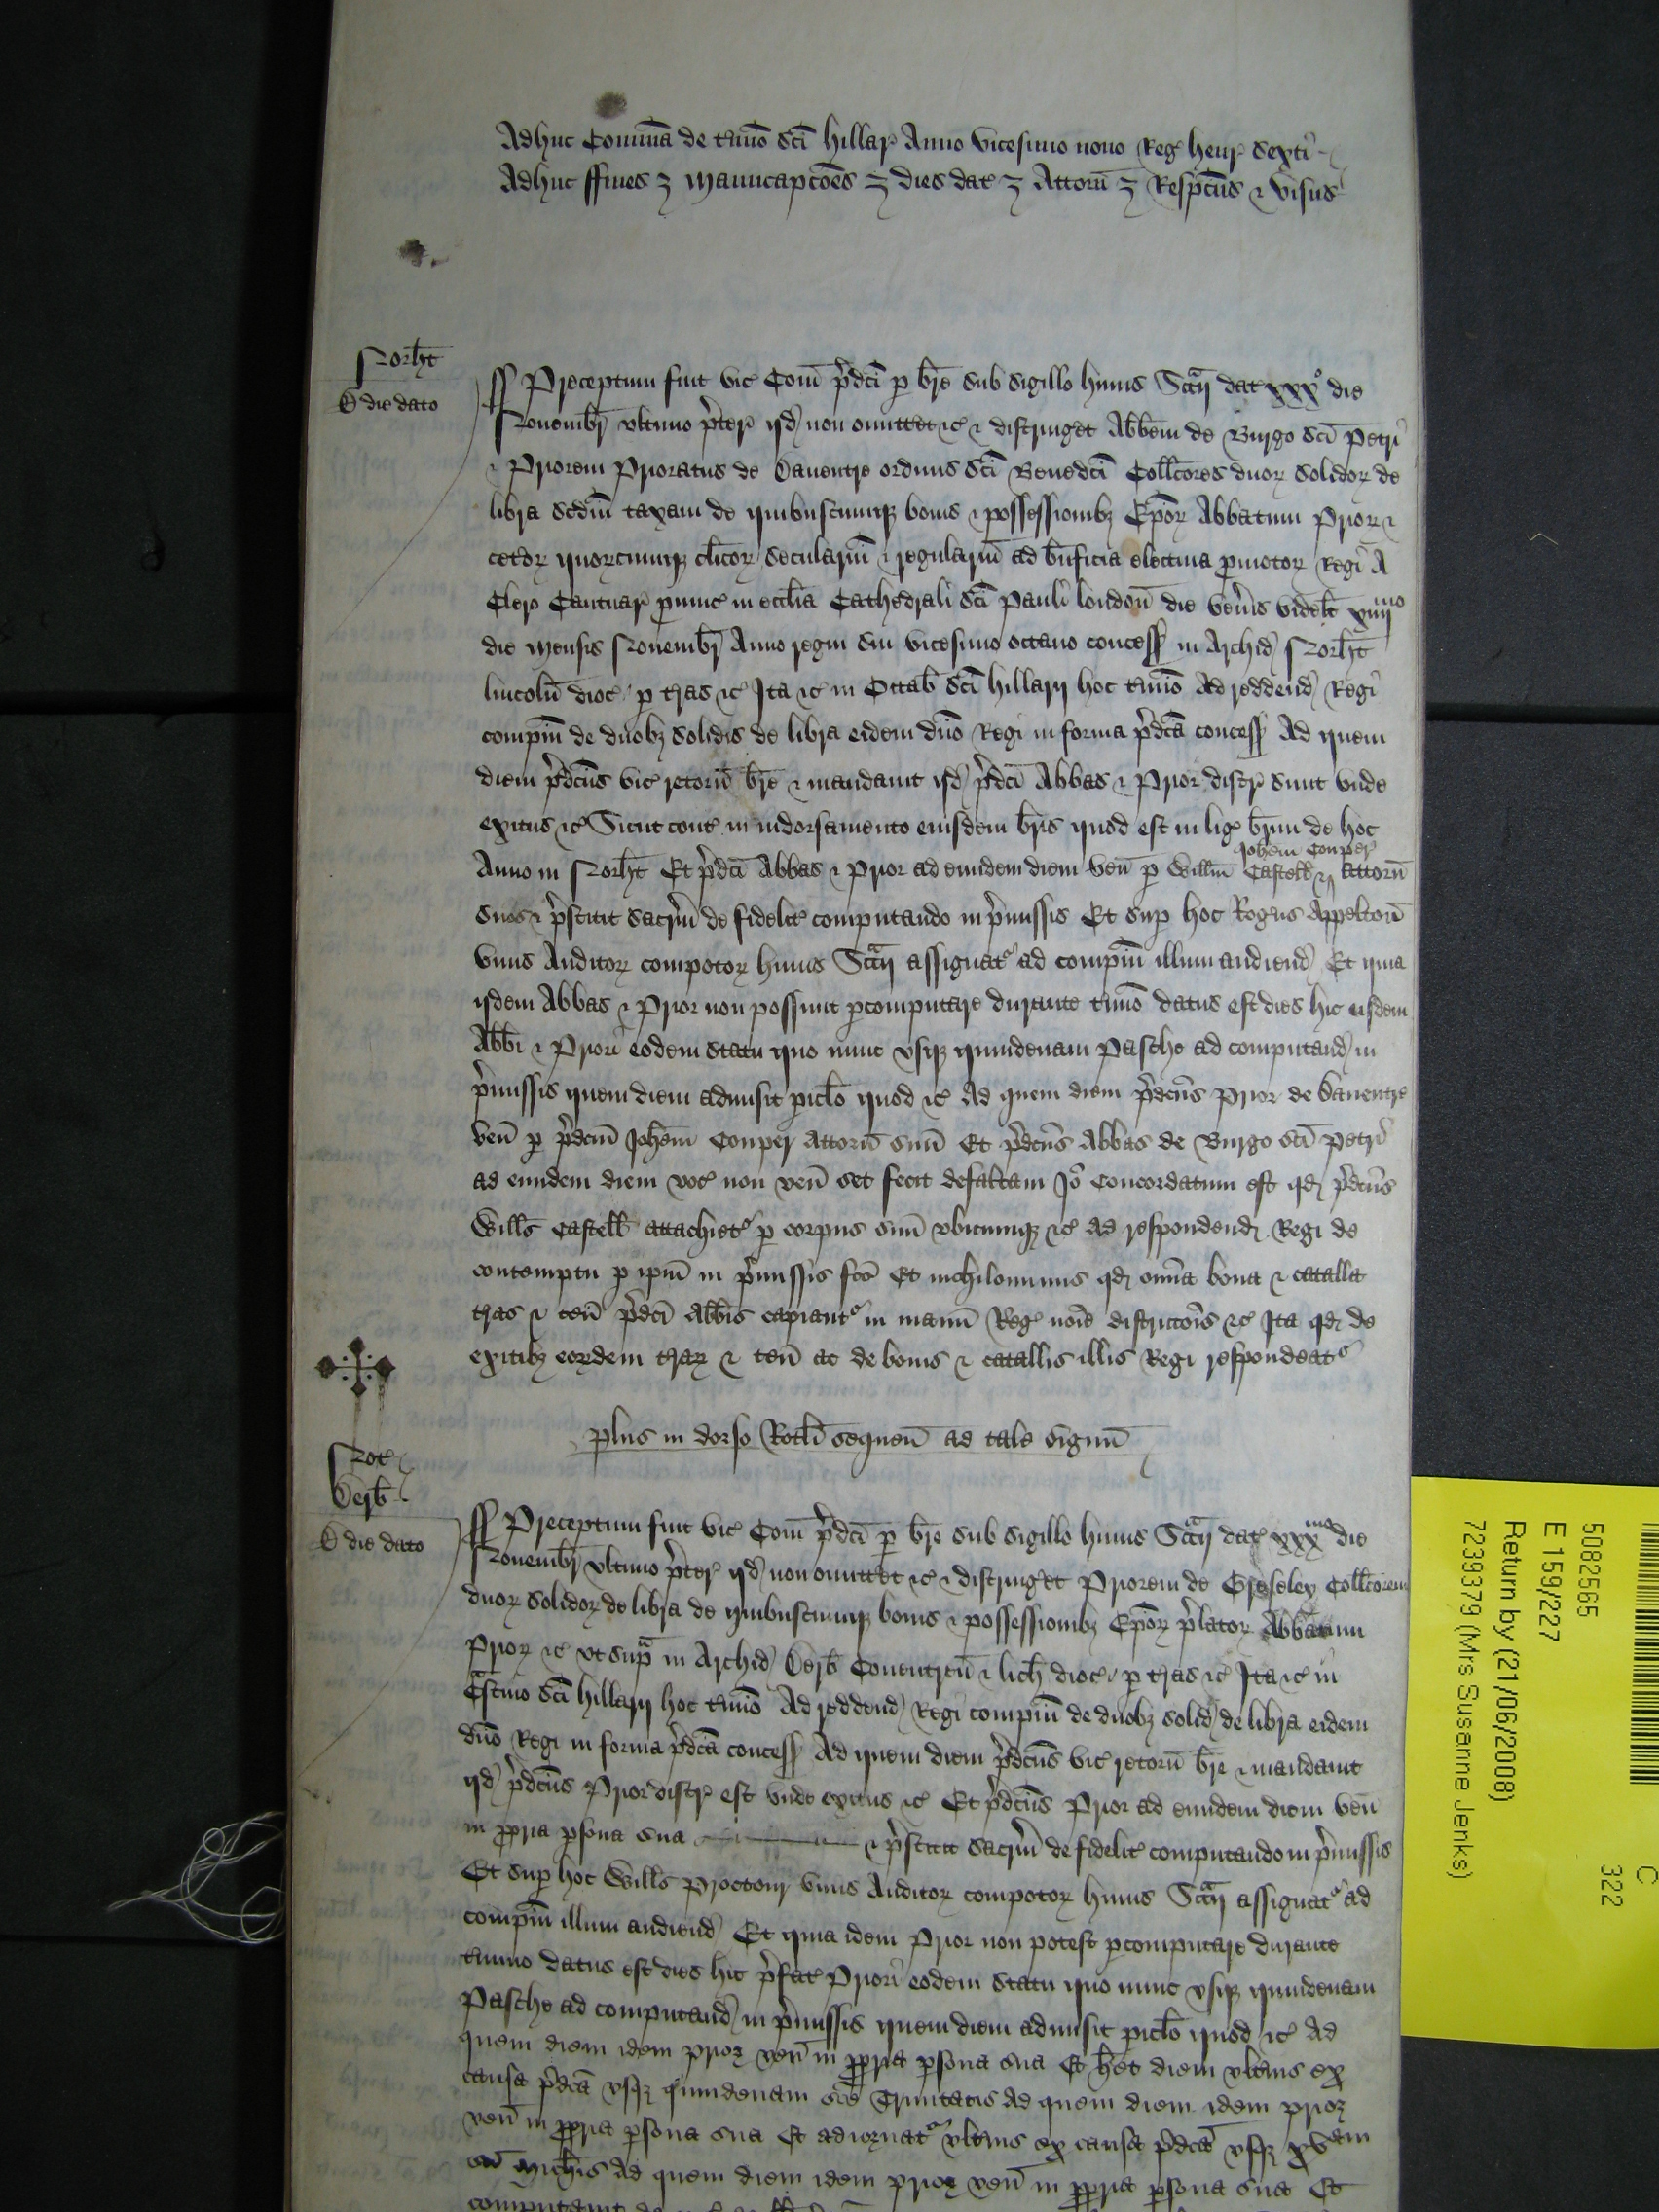 Adhuc Coia de tmio sci hillar Anno vicesimo nono Reg henr sexti
Adhuc ffines & manucapcoes & dies dat & Attorn & Respcus & visus
Norht
D die dato
ff Preceptum fuit vic Com pdci p bre sub sigillo huius Sccij dat xxxo die
Novembr ultimo preter qd non omittet &c & distringet Abbem de Burgo sci Petri
& Priorem Prioratus de Daventre ordinis sci Benedci Collcores duor solidor de
libra scdm taxam de quibuscumq bonis & possessionibz Epor Abbatum Prior &
ceteror quorcumq clicor seculariu & regulariu ad bnficia electiva pmotor Regi A
Clero Cantuar pvinc in ecclia Cathedrali sci Pauli london die venis videlt xiiijmo
die mensis Novembr Anno regni sui vicesimo octavo concess in Archid Norht
lincoln dioc p tras &c Ita &c in Octab sci hillarij hoc tmio Ad reddend Regi
compm de duobz solidis de libra eidem dno Regi in forma pdca concess Ad quem
diem pdcus vic retorn bre & mandavit qd pdci Abbas & Prior distr sunt unde
exitus &c Sicut cont in indorsamento eiusdem bris quod est in lig brium de hoc
Anno in Norht Et pdci Abbas & Prior ad eundem diem ven p Willm Castell & Johem Couper Attorn
suos & pstitit sacrm de fidelit computando in pmissis Et sup hoc Rogus Appelton
unus Auditor compotor huius Sccij assignat ad compm illum audiend Et quia
ijdem Abbas & Prior non possunt pcomputare durante tmio datus est dies hic eisdem
Abbi & Priori eodem statu quo nunc usq quindenam Pasche ad computand in
pmissis quem diem admisit piclo quod &c Ad quem diem pdcus Prior de Daventre
ven p pdcm Johem Couper Attorn suu Et pdcus Abbas de Burgo sci Petri
ad eundem diem voc non ven set fecit defaltam Io Concordatum est qd pdcus
Wills Castell attachiet p corpus suu ubicumq &c ad respondend Regi de
contemptu p ipm in pmissis fco Et nichilominus qd omia bona & catalla
tras & ten pdci Abbis capiant in manu Reg noie districcois &c Ita qd de
exitibz eordem trar & ten ac de bonis & catallis illis Regi respondeat
plus in dorso Rotli sequen ad tale signu
Not
Derb
D die dato
ff Preceptum fuit vic Com pdci p bre sub sigillo huius Sccij dat xxxmo die
Novembr ultimo preter qd non omittet &c & distringet Priorem de Greseley Collcorem
duor solidor de libra de quibuscumq bonis & possessionibz Epor plator Abbatum
Prior &c ut supa in Archid Derb Coventren & lich dioc p tras &c Ita &c in
Cstino sci hillarij hoc tmio Ad reddend Regi compm de duobz solid de libra eidem
dno Regi in forma pdca concess Ad quem diem pdcus vic retorn bre & mandavit
qd pdcus Prior distr est unde exitus &c Et pdcus Prior ad eundem diem ven
in ppria psona sua & pstitit sacrm de fidelit computando in pmissis
Et sup hoc Wills Proctour unus Auditor compotor huius Sccij assignat ad
compm illum audiend Et quia idem Prior non potest pcomputare durante
tmino datus est dies hic pfat Priori eodem statu quo nunc usq quindenam
Pasche ad computand in pmissis quem diem admisit piclo quod &c Ad
quem diem idem prior ven in ppria psona sua Et het diem ultius ex
causa pdca usq quindenam sce Trinitatis Ad quem diem idem prior
ven in ppria psona sua Et adiornat ultius ex causa pdca usq xvam
sci Michis Ad quem diem idem prior ven in ppria psona sua Et
C
322
5082565
E 159/227
Return by (21/06/2008)
7239379 (Mrs Susanne Jenks)